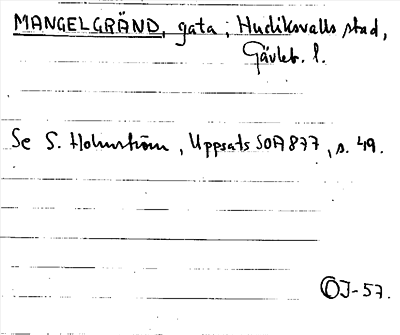 MANGELGRÄND, gata; Hudiksvalls stad,
Gävleb. l.
Se S. Holmström, Uppsats SOA 877, s. 49.
OJ-57.